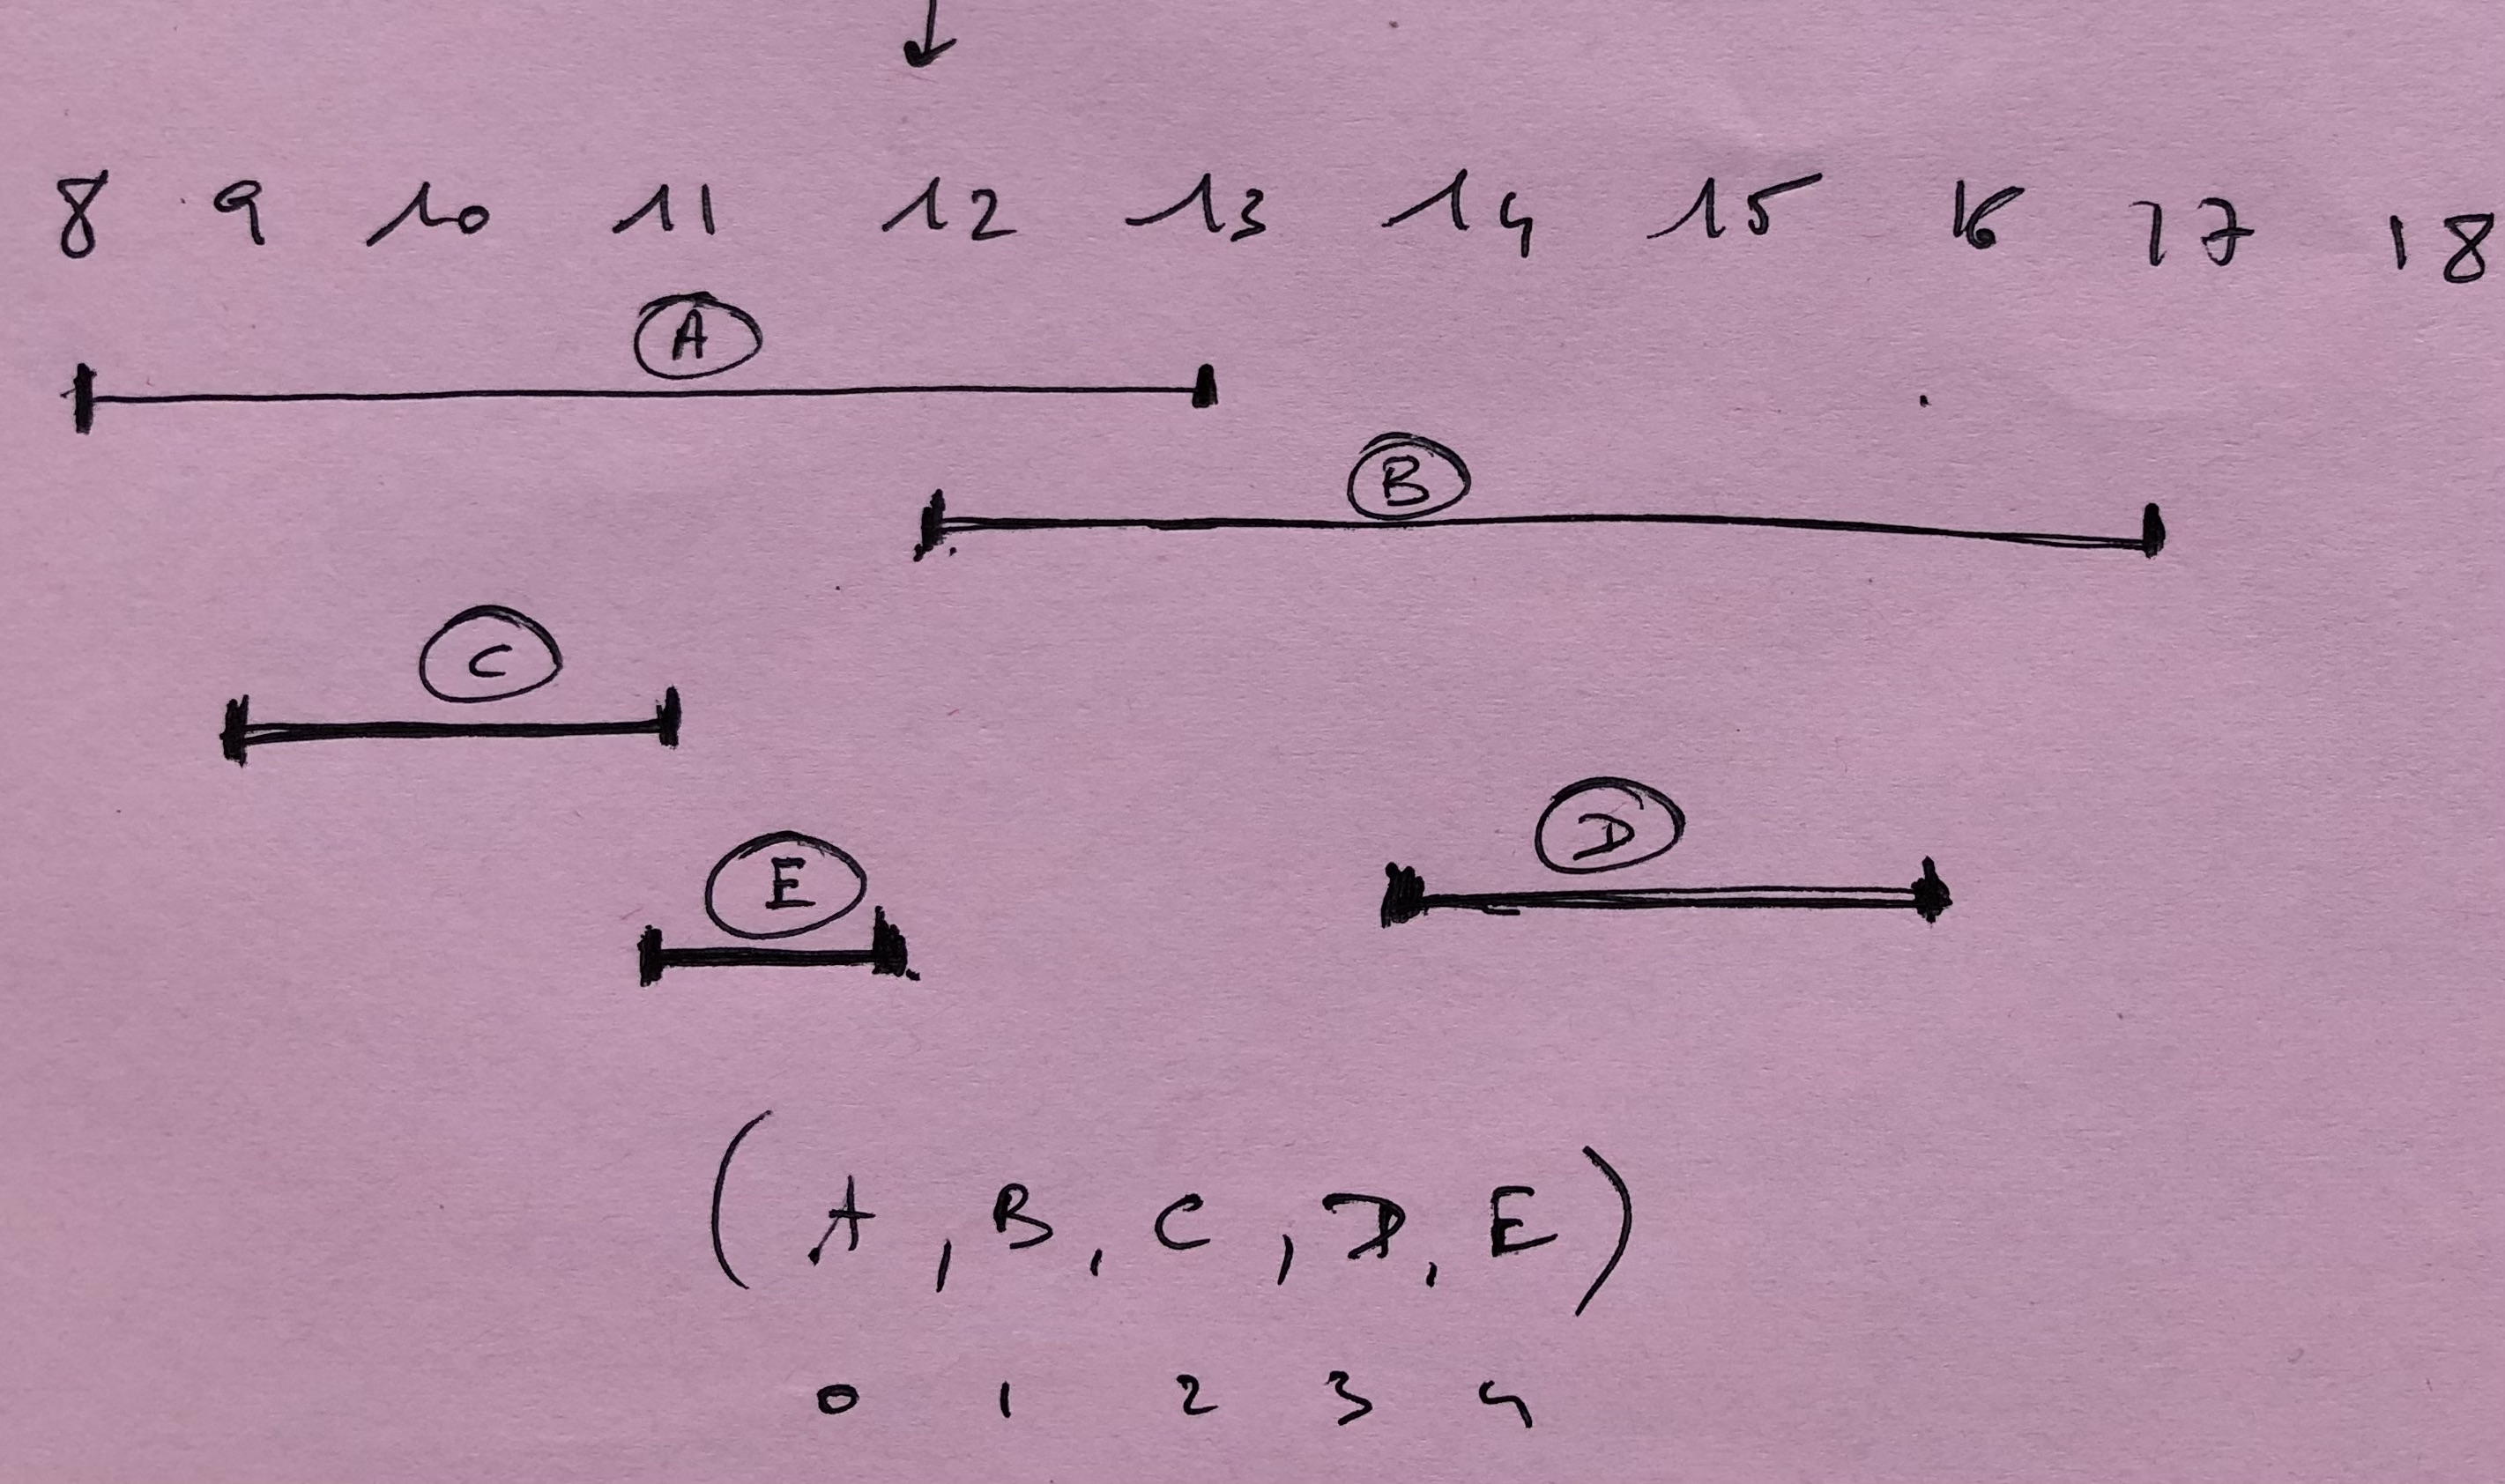 8 9 10 11 12 13 14 15 16 17 18
A
B
C
D
E
(A, B, C, D, E)
0 1 2 3 4